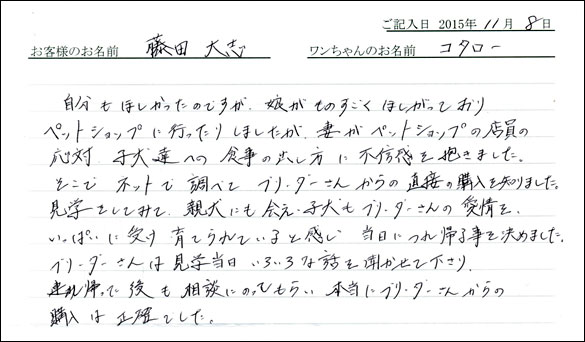 ご記入日 2015年 11月 8日
お客様のお名前 藤田 大志 ワンちゃんのお名前 コタロー
自分もほしかったのですが、娘がものすごくほしがっており
ペットショップに行ったりしましたが、妻がペットショップの店員の
応対、子犬達への食事の出し方に不信感を抱きました。
そこでネットで調べてブリーダーさんからの直接の購入を知りました。
見学をしてみて、親犬にも会え、子犬もブリーダーさんの愛情を、
いっぱいに受け育てられていると感じ 当日につれ帰る事を決めました。
ブリーダーさんは見学当日いろいろな話を聞かせて下さり、
連れ帰った後も相談にのってもらい 本当にブリーダーさんからの
購入は正確でした。